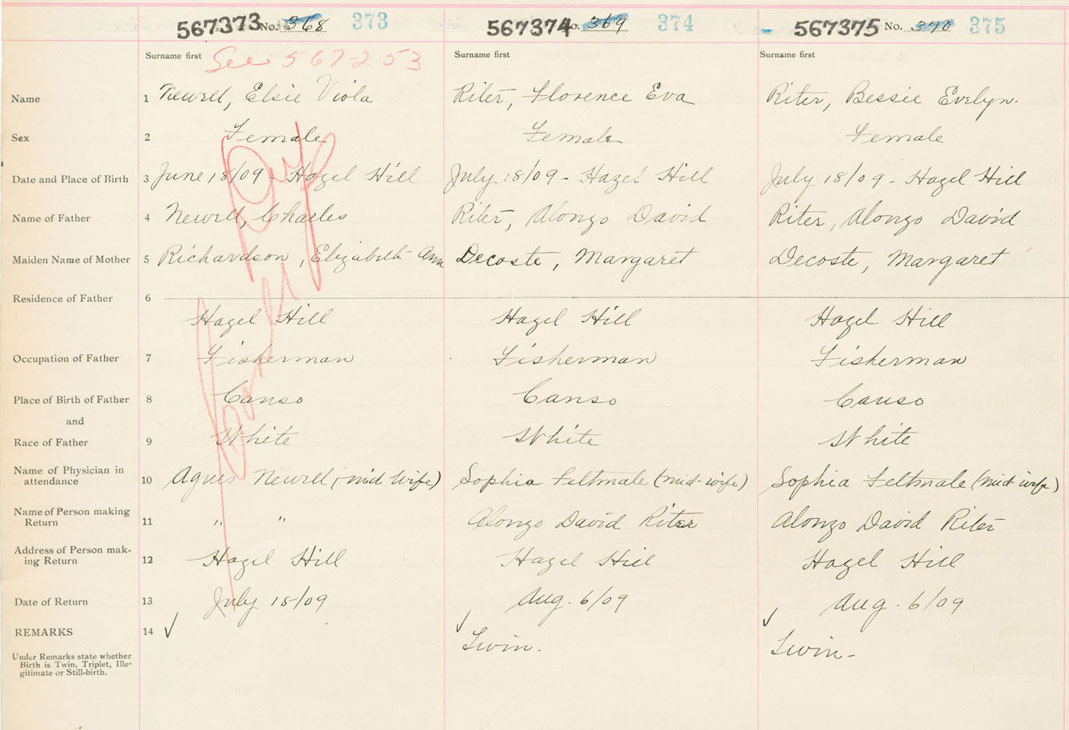 567373 No. 368 373 567374 No. 369 374 567375 No. 370 375
Surname first See 567253 Surname first Surname first
Name 1 Newell, Elsie Viola Riter, Florence Eva Riter, Bessie Evelyn.
Sex 2 Female Female Female
Date and Place of Birth 3 June 18/09 - Hazel Hill July 18/09 - Hazel Hill July 18/09 - Hazel Hill
Name of Father 4 Newell, Charles Riter, Alonzo David Riter, Alonzo David
Maiden Name of Mother 5 Richardson, Elizabeth Ann Decoste, Margaret Decoste, Margaret
Residence of Father 6
Hazel Hill Hazel Hill Hazel Hill
Occupation of Father 7 Fisherman Fisherman Fisherman
Place of Birth of Father 8 Canso Canso Canso
and
Race of Father 9 White White White
Name of Physician in
attendance 10 Agnes Newell (mid wife) Sophia Feltmate (mid-wife) Sophia Feltmate (mid wife)
Name of Person making
Return 11 " " Alonzo David Riter Alonzo David Riter
Address of Person mak-
ing Return 12 Hazel Hill Hazel Hill Hazel Hill
Date of Return 13 July 18/09 Aug. 6/09 Aug. 6/09
REMARKS 14 ✓ ✓ ✓
Under Remarks state whether Twin. Twin-
Birth is Twin, Triplet, Ille-
gitimate or Still-birth.